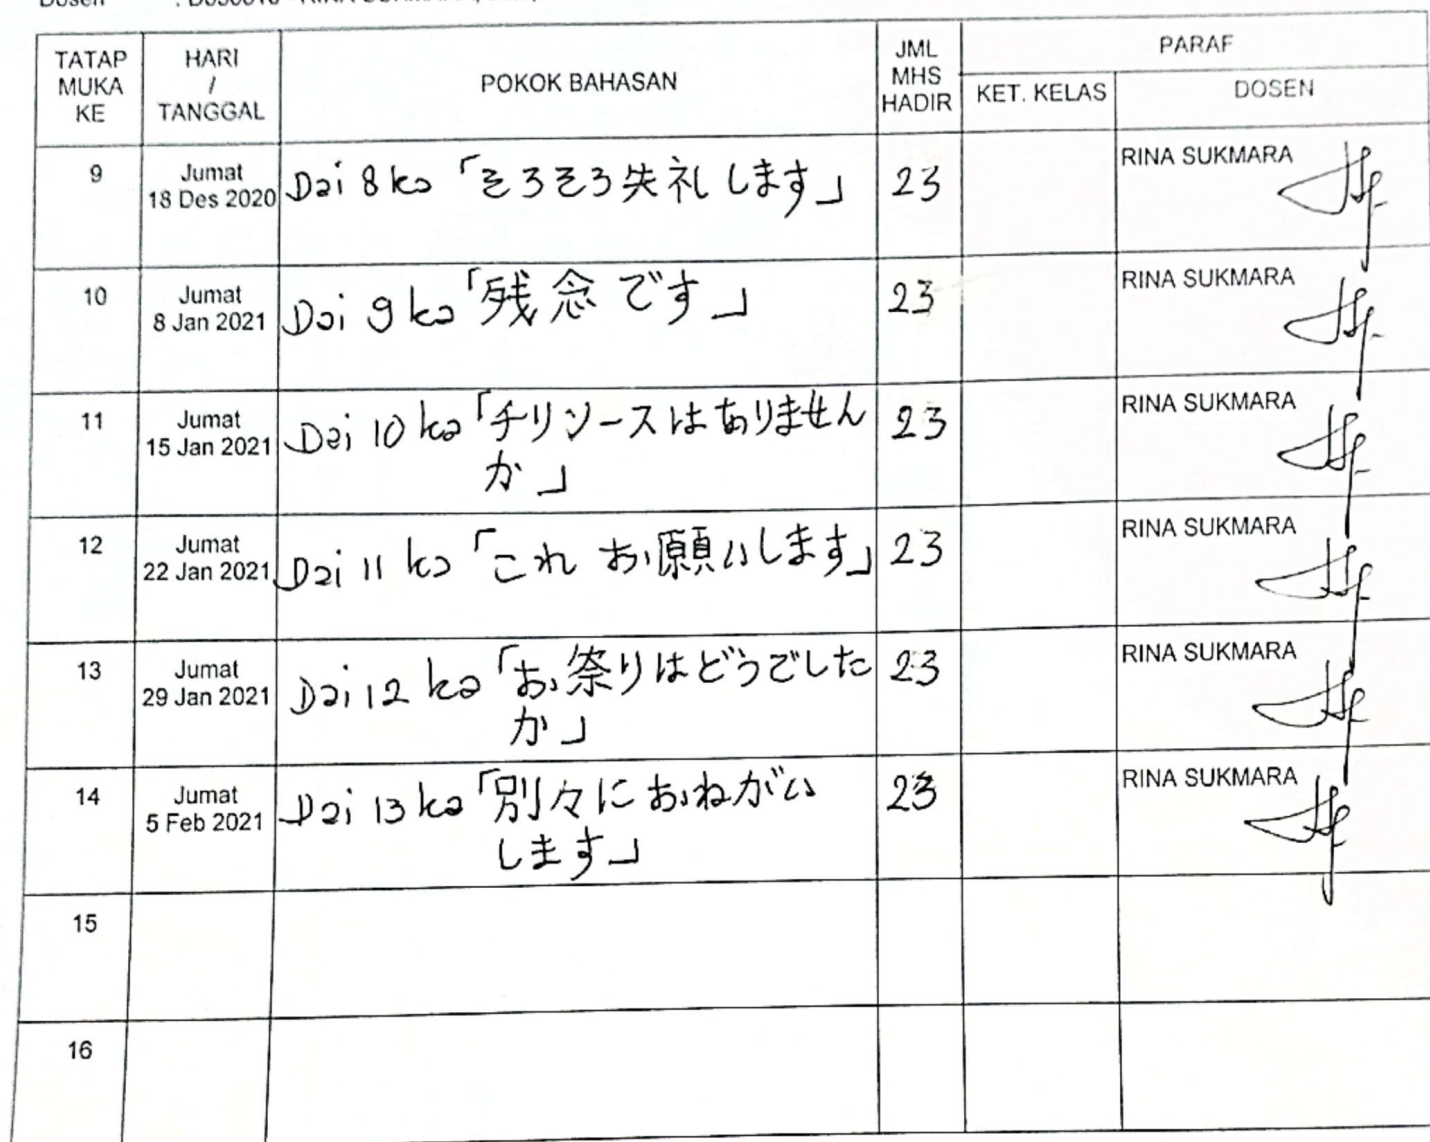 Dosen
TATAP MUKA KE
HARI / TANGGAL
POKOK BAHASAN
JML MHS HADIR
PARAF
KET. KELAS
DOSEN
9
Jumat
18 Des 2020
Dai 8 ka「そろそろ失礼します」
23
RINA SUKMARA
10
Jumat
8 Jan 2021
Dai 9 ka「残念です」
23
RINA SUKMARA
11
Jumat
15 Jan 2021
Dai 10 ka「チリソースはありません
か」
23
RINA SUKMARA
12
Jumat
22 Jan 2021
Dai 11 ka「これ お願いします」
23
RINA SUKMARA
13
Jumat
29 Jan 2021
Dai 12 ka「お祭りはどうでした
か」
23
RINA SUKMARA
14
Jumat
5 Feb 2021
Dai 13 ka「別々におねがい
します」
23
RINA SUKMARA
15
16